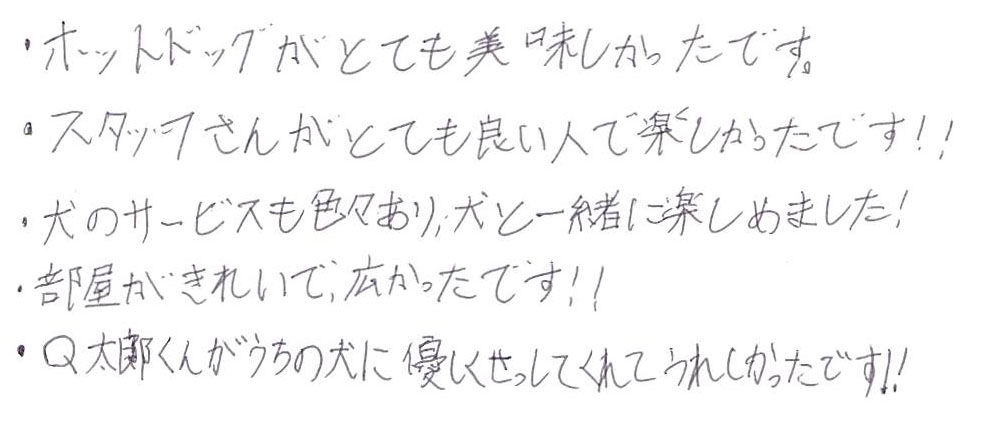 ・ホットドッグがとても美味しかったです。
・スタッフさんがとても良い人で楽しかったです!!
・犬のサービスも色々あり、犬と一緒に楽しめました!
・部屋がきれいで、広かったです!!
・Q太郎くんがうちの犬に優しくせっしてくれてうれしかったです!!